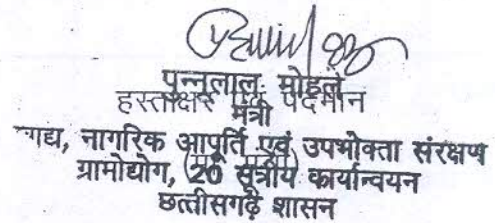 पुन्नूलाल मोहले
हस्ताक्षर एवं पदनाम
मंत्री
खाद्य, नागरिक आपूर्ति एवं उपभोक्ता संरक्षण
ग्रामोद्योग, 20 सूत्रीय कार्यान्वयन
छत्तीसगढ़ शासन